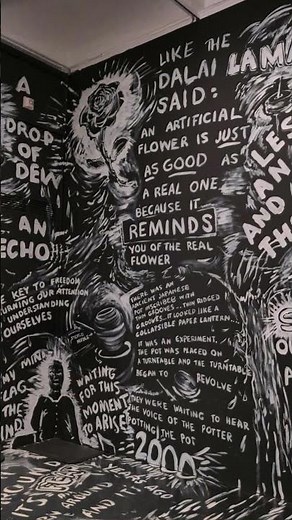 A
DROP
OF
DEW
AN
ECHO
KEY TO FREEDOM
TURNING OUR ATTENTION
UNDERSTANDING
OURSELVES
MY MIND
FLAG
THE
WAITING
FOR THIS
MOMENT
TO ARISE
LIKE THE
DALAI LAMA
SAID:
AN ARTIFICIAL
FLOWER IS JUST
AS GOOD AS
A REAL ONE
BECAUSE IT
REMINDS
YOU OF THE REAL
FLOWER
THERE WAS AN
ANCIENT JAPANESE
POT INSCRIBED WITH
THIN GROOVES... THIN RIDGED
GROOVES... IT LOOKED LIKE A
COLLAPSIBLE PAPER LANTERN...
IT WAS AN EXPERIMENT.
THE POT WAS PLACED ON
A TURNTABLE AND THE TURNTABLE
BEGAN TO REVOLVE
THEY WERE WAITING TO HEAR
THE VOICE OF THE POTTER
POTTING THE POT
2000
YEARS AGO
LES
AN
AND
TH
AROUND
AND IT